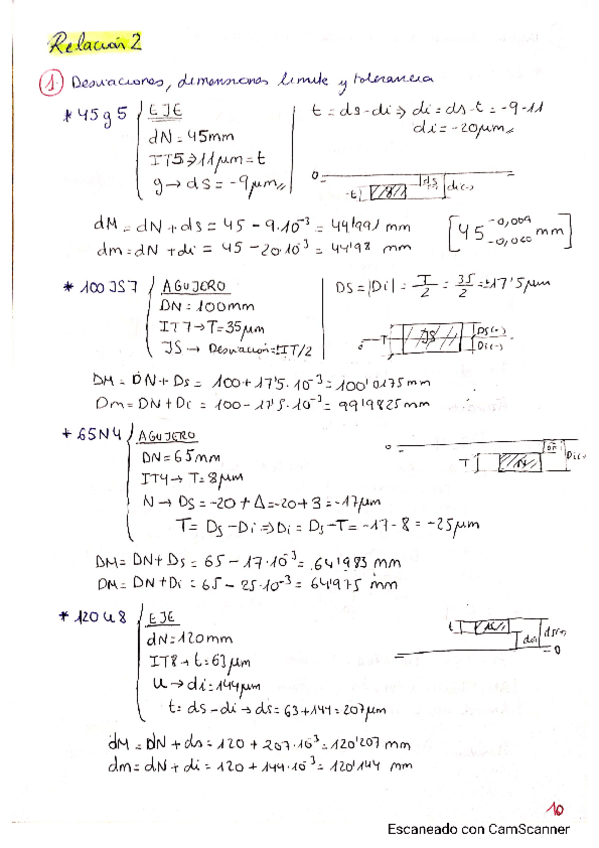 Relación 2
1 Desviaciones, dimensiones limite y tolerancia
* 45 g 5 EJE
dN = 45mm
IT5 ⇒ 11μm = t
g → ds = -9μm
t = ds - di ⇒ di = ds - t = -9 - 11
di = -20μm
0
-t ds di(-)
dM = dN + ds = 45 - 9·10⁻³ = 44'991 mm
dm = dN + di = 45 - 20·10⁻³ = 44'98 mm
* 100 JS7 AGUJERO
DN = 100mm
IT7 → T = 35μm
JS → Desviación = ± IT/2
DS = |Di| = T/2 = 35/2 = ±17'5μm
0 T JS Ds(+)
Di(-)
DM = DN + Ds = 100 + 17'5·10⁻³ = 100'0175 mm
Dm = DN + Di = 100 - 17'5·10⁻³ = 99'9825 mm
* 65N4 AGUJERO
DN = 65mm
IT4 → T = 8μm
N → Ds = -20 + Δ = -20 + 3 = -17μm
T = Ds - Di ⇒ Di = Ds - T = -17 - 8 = -25μm
0
T
DM = DN + Ds = 65 - 17·10⁻³ = 64'983 mm
Dm = DN + Di = 65 - 25·10⁻³ = 64'975 mm
* 120 u 8 EJE
dN = 120mm
IT8 → t = 63μm
u → di = 144μm
t = ds - di → ds = 63 + 144 = 207μm
t ds(+)
0
dM = DN + ds = 120 + 207·10⁻³ = 120'207 mm
dm = dN + di = 120 + 144·10⁻³ = 120'144 mm
10
Escaneado con CamScanner